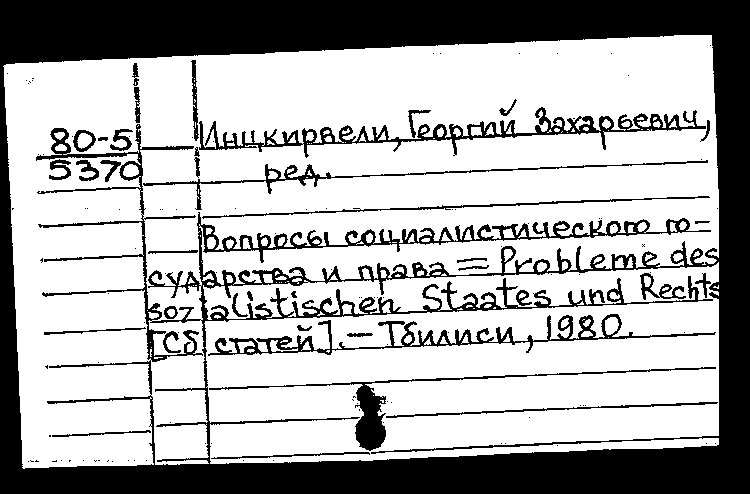 80-5
5370
Инцкирвели, Георгий Захарьевич,
ред.
Вопросы социалистического го=
сударства и права = Probleme des
sozialistischen Staates und Rechts
[Сб статей]. — Тбилиси, 1980.